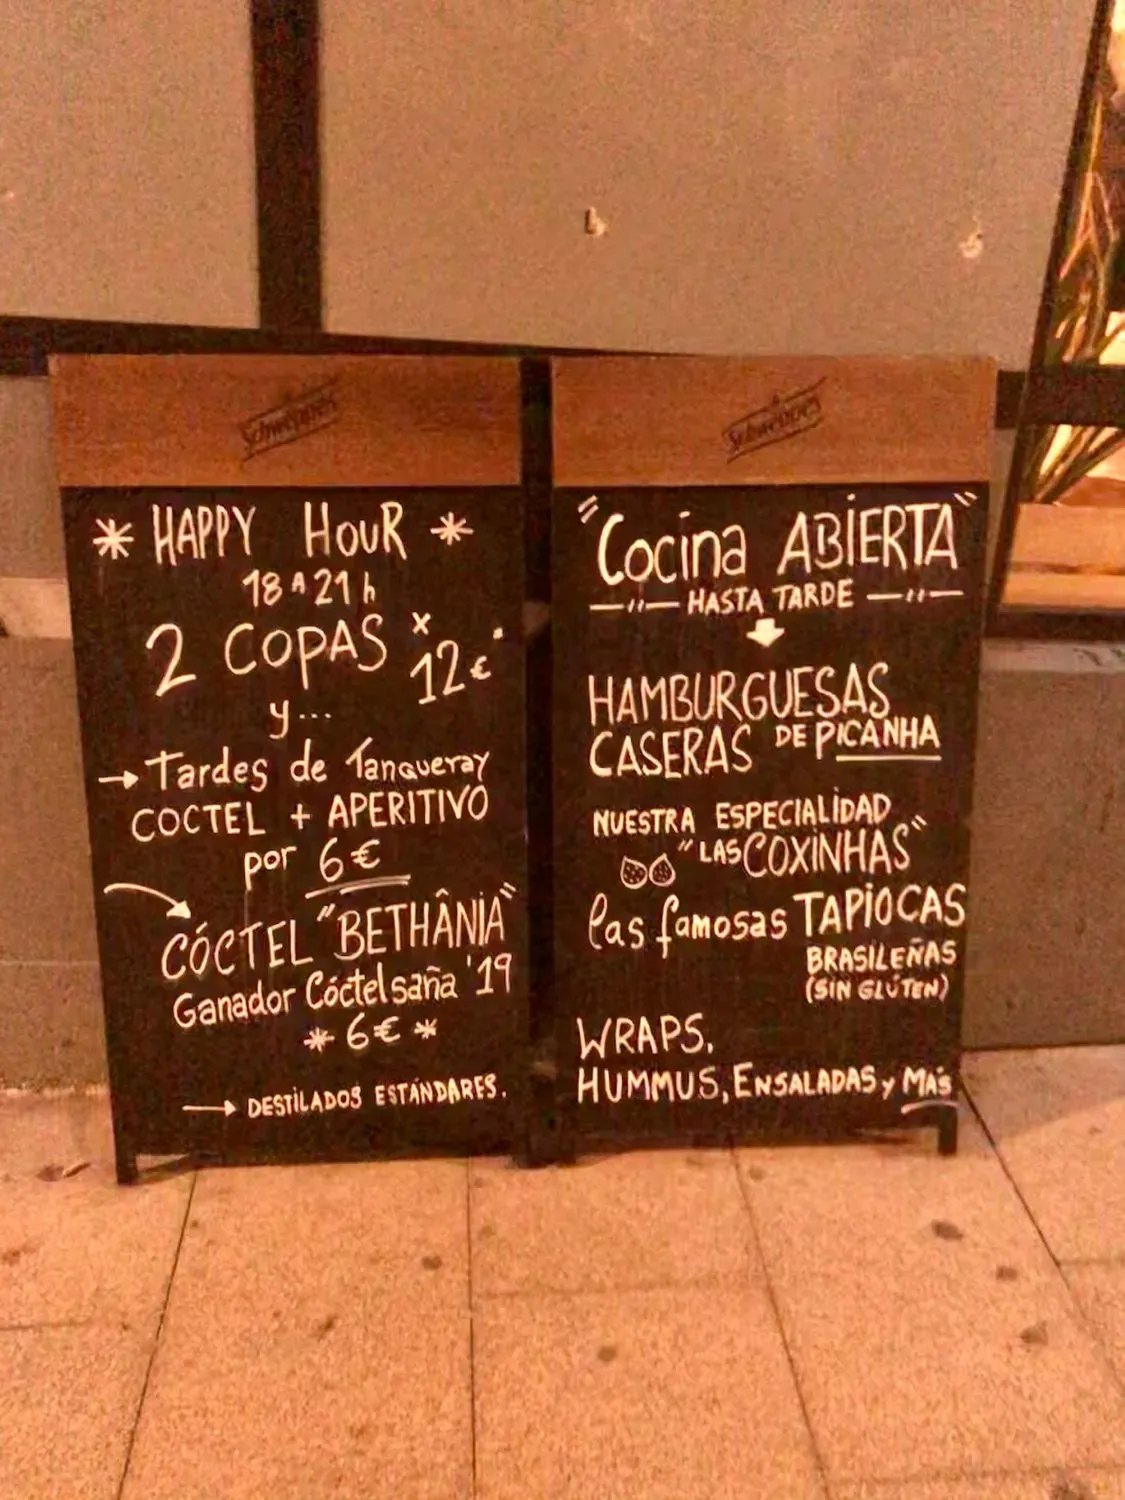 Schweppes
* HAPPY HOUR *
18 A 21 h
2 COPAS x 12€
y...
→ Tardes de Tanqueray
COCTEL + APERITIVO
por 6€
CÓCTEL "BETHÂNIA"
Ganador Cóctelsaña '19
* 6€ *
→ DESTILADOS ESTÁNDARES.
Schweppes
"Cocina ABIERTA"
— " — HASTA TARDE — " —
HAMBURGUESAS
CASERAS DE PICANHA
NUESTRA ESPECIALIDAD
"LAS COXINHAS"
las famosas TAPIOCAS
BRASILEÑAS
(SIN GLÚTEN)
WRAPS,
HUMMUS, ENSALADAS y MÁS